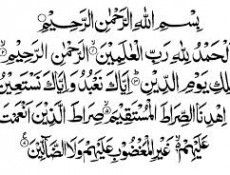 بِسْمِ اللهِ الرَّحْمٰنِ الرَّحِيْمِ
لْحَمْدُ لِلّٰهِ رَبِّ الْعٰلَمِيْنَ ۙ الرَّحْمٰنِ الرَّحِيْمِ ۙ
لِكِ يَوْمِ الدِّيْنِ ۗ اِيَّاكَ نَعْبُدُ وَاِيَّاكَ نَسْتَعِيْنُ
اِهْدِنَا الصِّرَاطَ الْمُسْتَقِيْمَ ۙ صِرَاطَ الَّذِيْنَ اَنْعَمْتَ
عَلَيْهِمْ غَيْرِ الْمَغْضُوْبِ عَلَيْهِمْ وَلَا الضَّآلِّيْنَ